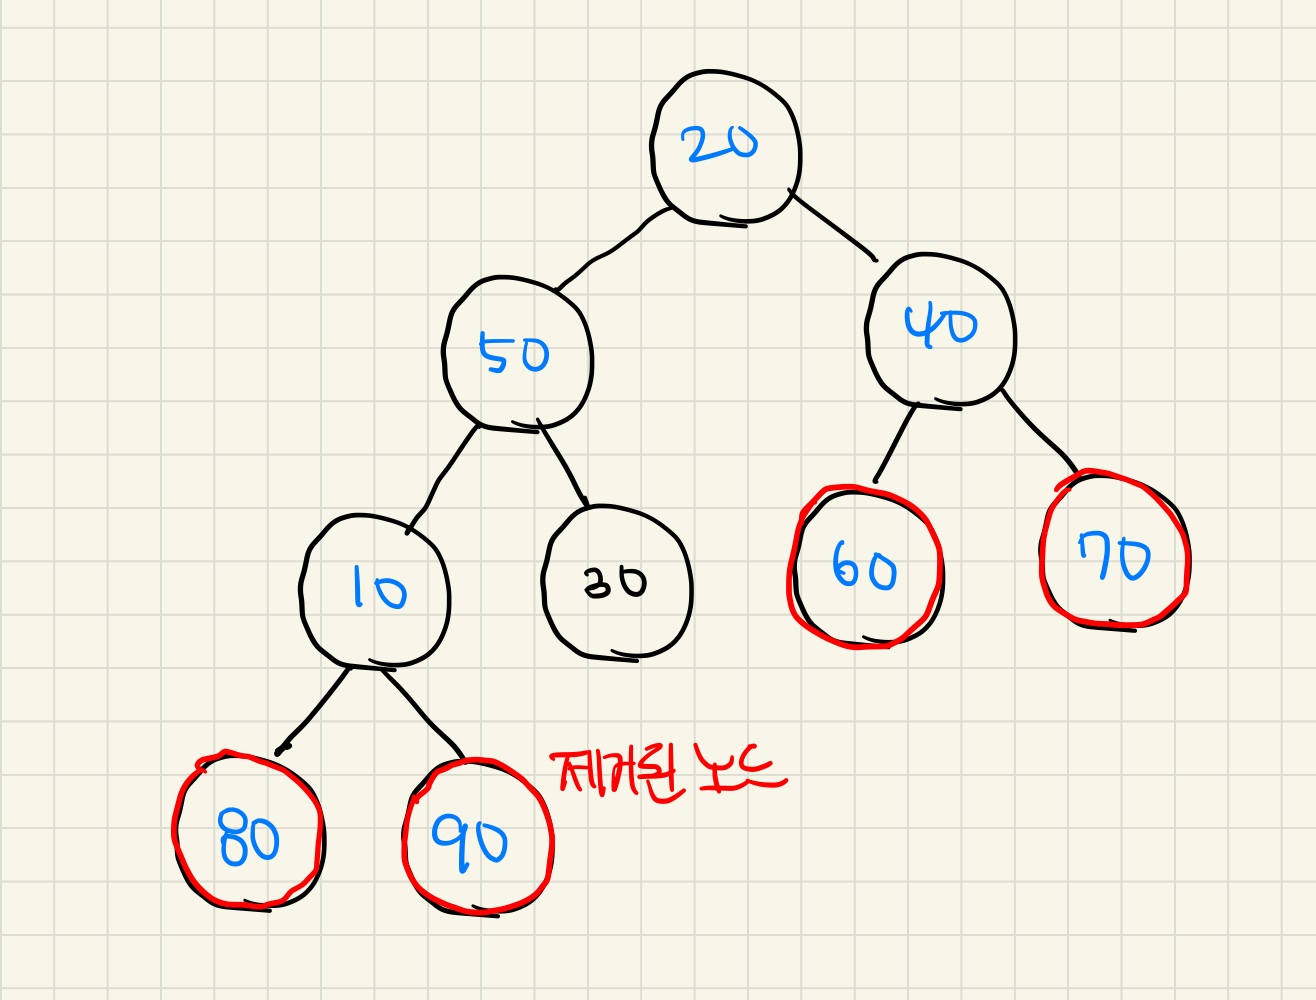 20
50
40
10
30
60
70
80
90
제거된 노드